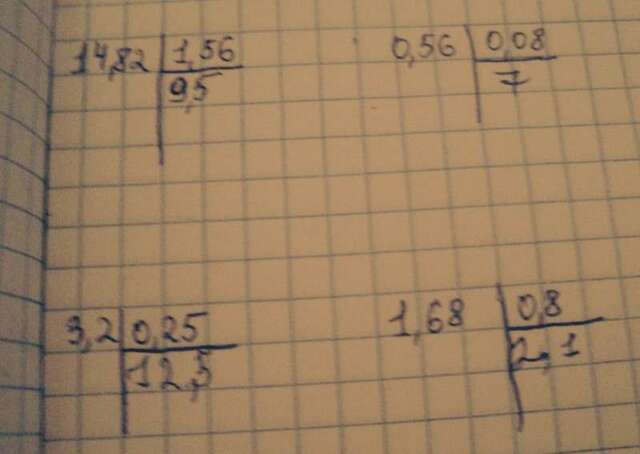 14,82 1,56
9,5
0,56 0,08
7
3,2 0,25
12,5
1,68 0,8
2,1